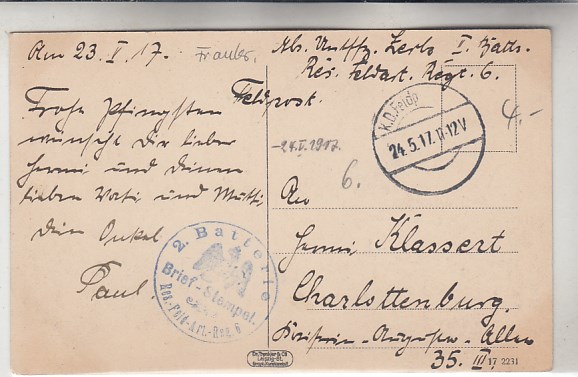 Am 23.V.17.
Frankr.
Frohe Pfingsten
wünscht Dir lieber
Henni und Deinen
lieben Vati und Mutti
Dein Onkel
Paul.
2. Batterie
Brief-Stempel.
Res.-Feld-Art.-Reg. 6
Abs. Untffz. Zerbs I. Batt.
Res. Feldart. Regt. 6.
Feldpost.
K.D.Feldp.
24.5.17.11-12V
4.-
-24.V.1917
6.
An
Henni Klassert
Charlottenburg.
Kaiserin-Augusta-Allee
35. III
17 2231